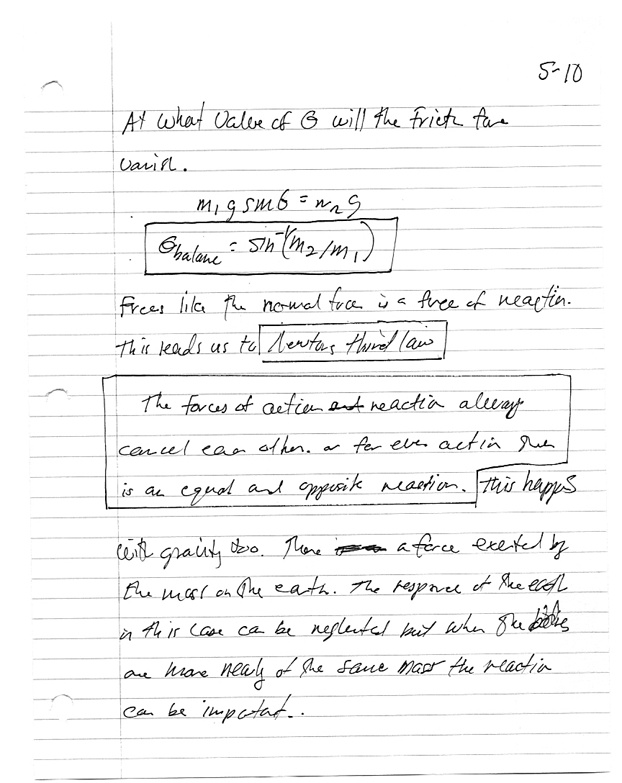 5-10
At what value of θ will the friction force
vanish.
m₁ g sin θ = m₂ g
θbalance = sin⁻¹(m₂/m₁)
Forces like the normal force is a force of reaction.
This leads us to Newtons third law
The forces of action and reaction always
cancel each other. or for ever action there
is an equal and opposite reaction. This happs
with gravity too. There a force exerted by
the mass on the earth. The response of the earth
in this case can be neglected but when the bodies
are more nearly of the same mass the reaction
can be important..